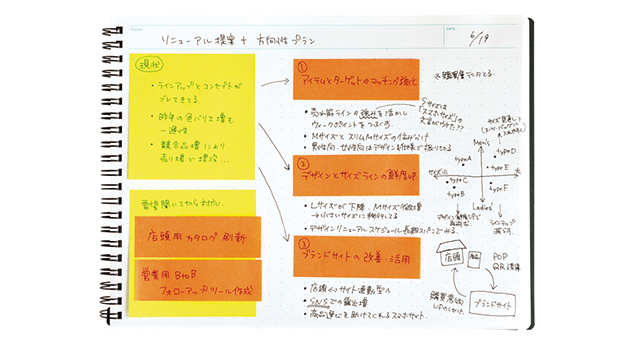 リニューアル提案 + 方向性プラン
DATE
6/19
現状
・ラインアップとコンセプトが
ブレてきてる
・昨年の色バリエ増も
一過性
・競合品増により
売り場で埋没...
要望聞いてから対応
店頭用カタログ刷新
営業用 BtoB
フォローアップツール作成
①
アイテムとターゲットのマッチング強化
※購買層データとる
・売れ筋ラインの強みを活かし
ウィークポイントをつぶす
・MサイズとスリムMサイズの住み分け
・男性向・女性向はデザイン&仕様で振り切る
Sサイズは
「スマホサイズ」の
②
デザインとサイズラインの鮮度UP
・Lサイズが下降、Mサイズ微増
→小さいサイズに移行してる
・デザインリニューアル スケジュール長期スパンでみる
③
ブランドサイトの改善・活用
・店頭⇔サイト連動型へ
・SNSでの露出増
・商品選びを助けてくれるスマホサイト
サイズ見直し!
Men's
type A
type D
type E
サイズ小
大
type C
type B
type F
Ladies'
ラインアップ
減らす
店頭
商品
POP
QR誘導
購買意欲
UPのしかけ
ブランドサイト